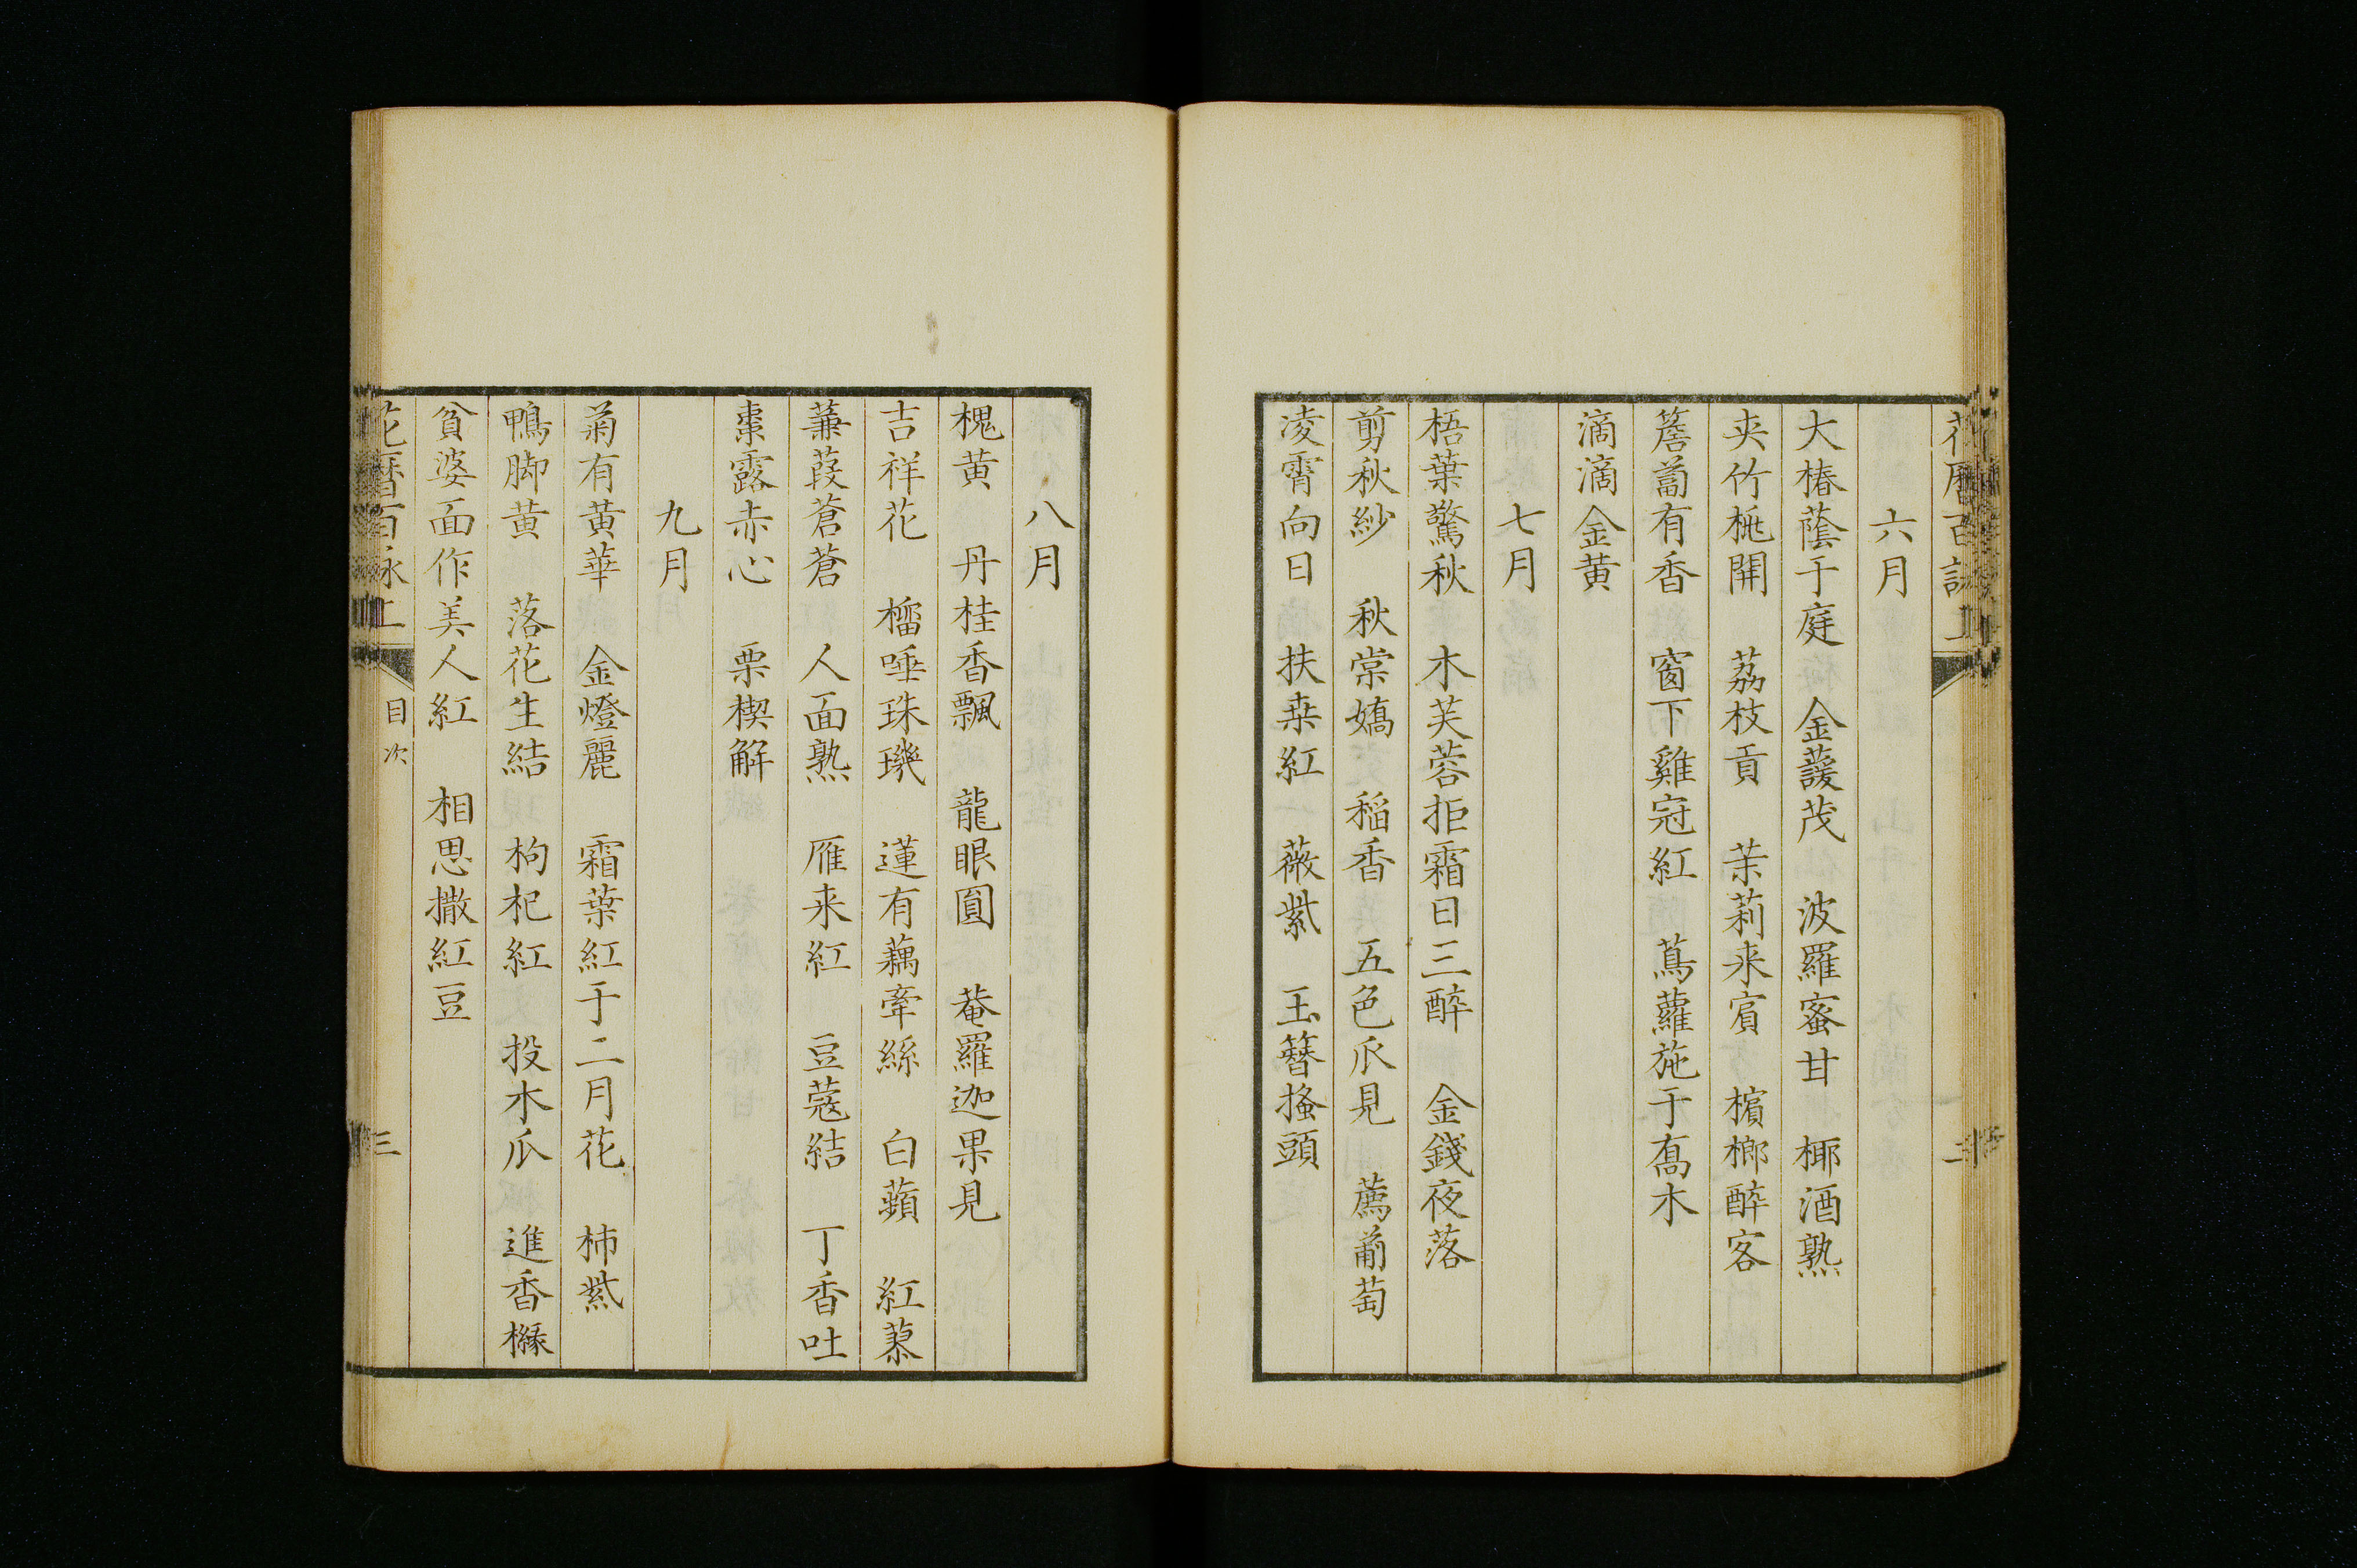 花曆百詠上
二
六月
大椿蔭于庭　金諼茂　波羅蜜甘　椰酒熟
夾竹桃開　荔枝貢　茉莉来賔　檳榔醉客
簷蔔有香　窗下雞冠紅　蔦蘿施于髙木
滴滴金黄
七月
梧葉驚秋　木芙蓉拒霜日三醉　金錢夜落
剪秋紗　秋棠嬌　稲香　五色爪見　薦葡萄
凌霄向日　扶桒紅　薇紫　玉簪搔頭
八月
槐黄　丹桂香飄　龍眼圓　菴羅迦果見
吉祥花　橊唾珠璣　蓮有藕牽絲　白蘋　紅蓼
蒹葭蒼蒼　人面熟　雁来紅　豆蔻結　丁香吐
棗露赤心　栗楔解
九月
菊有黄華　金燈麗　霜葉紅于二月花　柿紫
鴨脚黄　落花生結　枸杞紅　投木瓜　進香櫞
貧婆面作美人紅　相思撒紅豆
花曆百詠上
目次
三